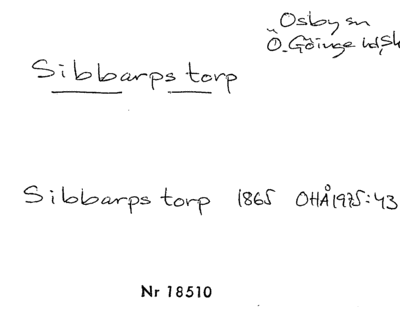 Osby sn
Ö. Göinge hd, Sk
Sibbarps torp
Sibbarps torp 1865 OHÅ 1975:43
Nr 18510